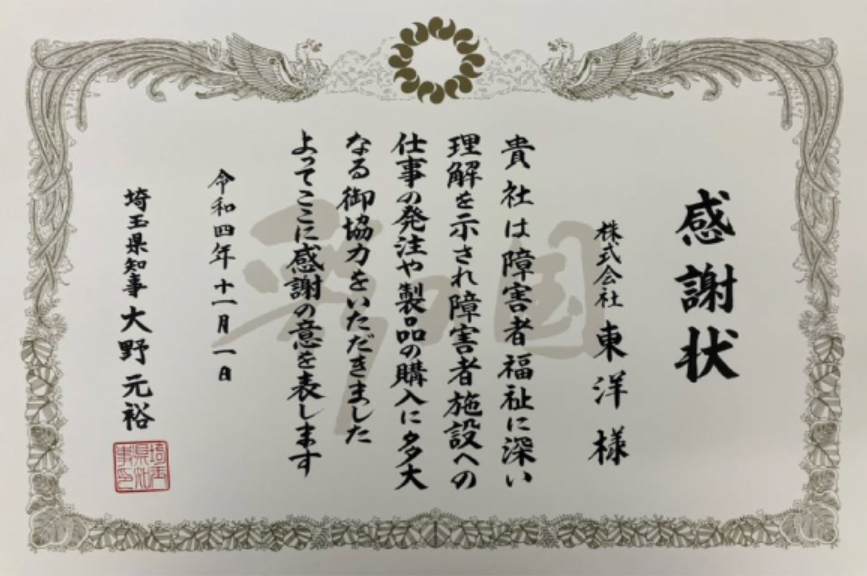 感謝状
株式会社 東洋 様
貴社は障害者福祉に深い
理解を示され障害者施設への
仕事の発注や製品の購入に多大
なる御協力をいただきました
よってここに感謝の意を表します
令和四年十一月一日
埼玉県知事 大野元裕
埼玉県知事印
彩の国